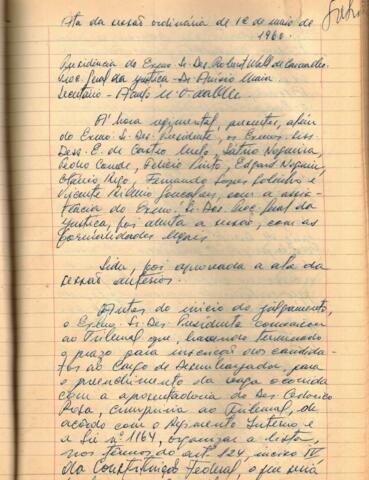 Ata da sessão ordinária de 12 de maio de
1960.
Presidência do Exmo. Sr. Des. Robert Wall de Carvalho.
Proc. Geral da Justiça - Dr. Anísio Maia
Secretário -
À hora regimental, presentes, além
do Exmo. Sr. Des. Presidente, os Exmos. Srs.
Dess. E. de Castro Melo, Sátiro Nogueira,
Pedro Conde, Felício Pinto, Edgard Nogueira,
Otávio Rêgo, Fernando Lopes Sobrinho e
Vicente Ribeiro Gonçalves, com a assis-
tência do Exmo. Sr. Des. Proc. Geral da
Justiça, foi aberta a sessão, com as
formalidades legais.
Lida, foi aprovada a ata da
sessão anterior.
Antes do início do julgamento,
o Exmo. Sr. Des. Presidente comunicou
ao Tribunal que, havendo terminado
o prazo para inscrição dos candida-
tos ao cargo de Desembargador, para
o preenchimento da vaga ocorrida
com a aposentadoria do Des.
Rosa, cumpria ao Tribunal, de
acordo com o Regimento Interno e
a Lei nº 1164, organizar a lista,
nos termos do art. 124, inciso IV
da Constituição Federal, o que será